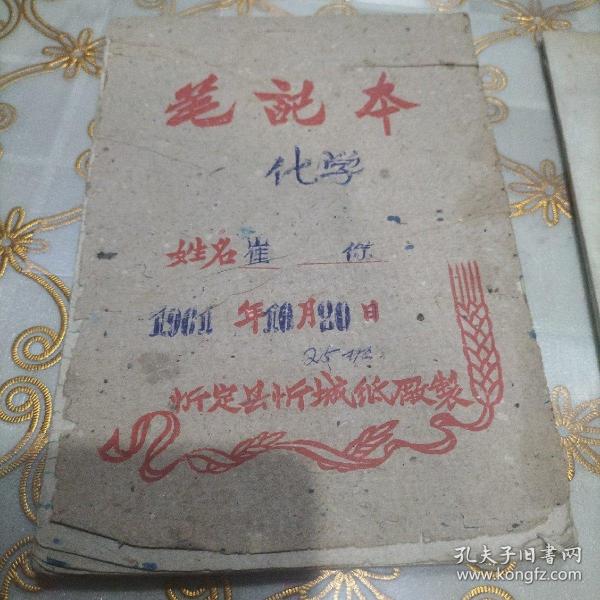 笔記本
化学
姓名崔 保
1961 年10月20日
25班
忻定县忻城纸厰製
孔夫子旧书网
www.kongfz.com